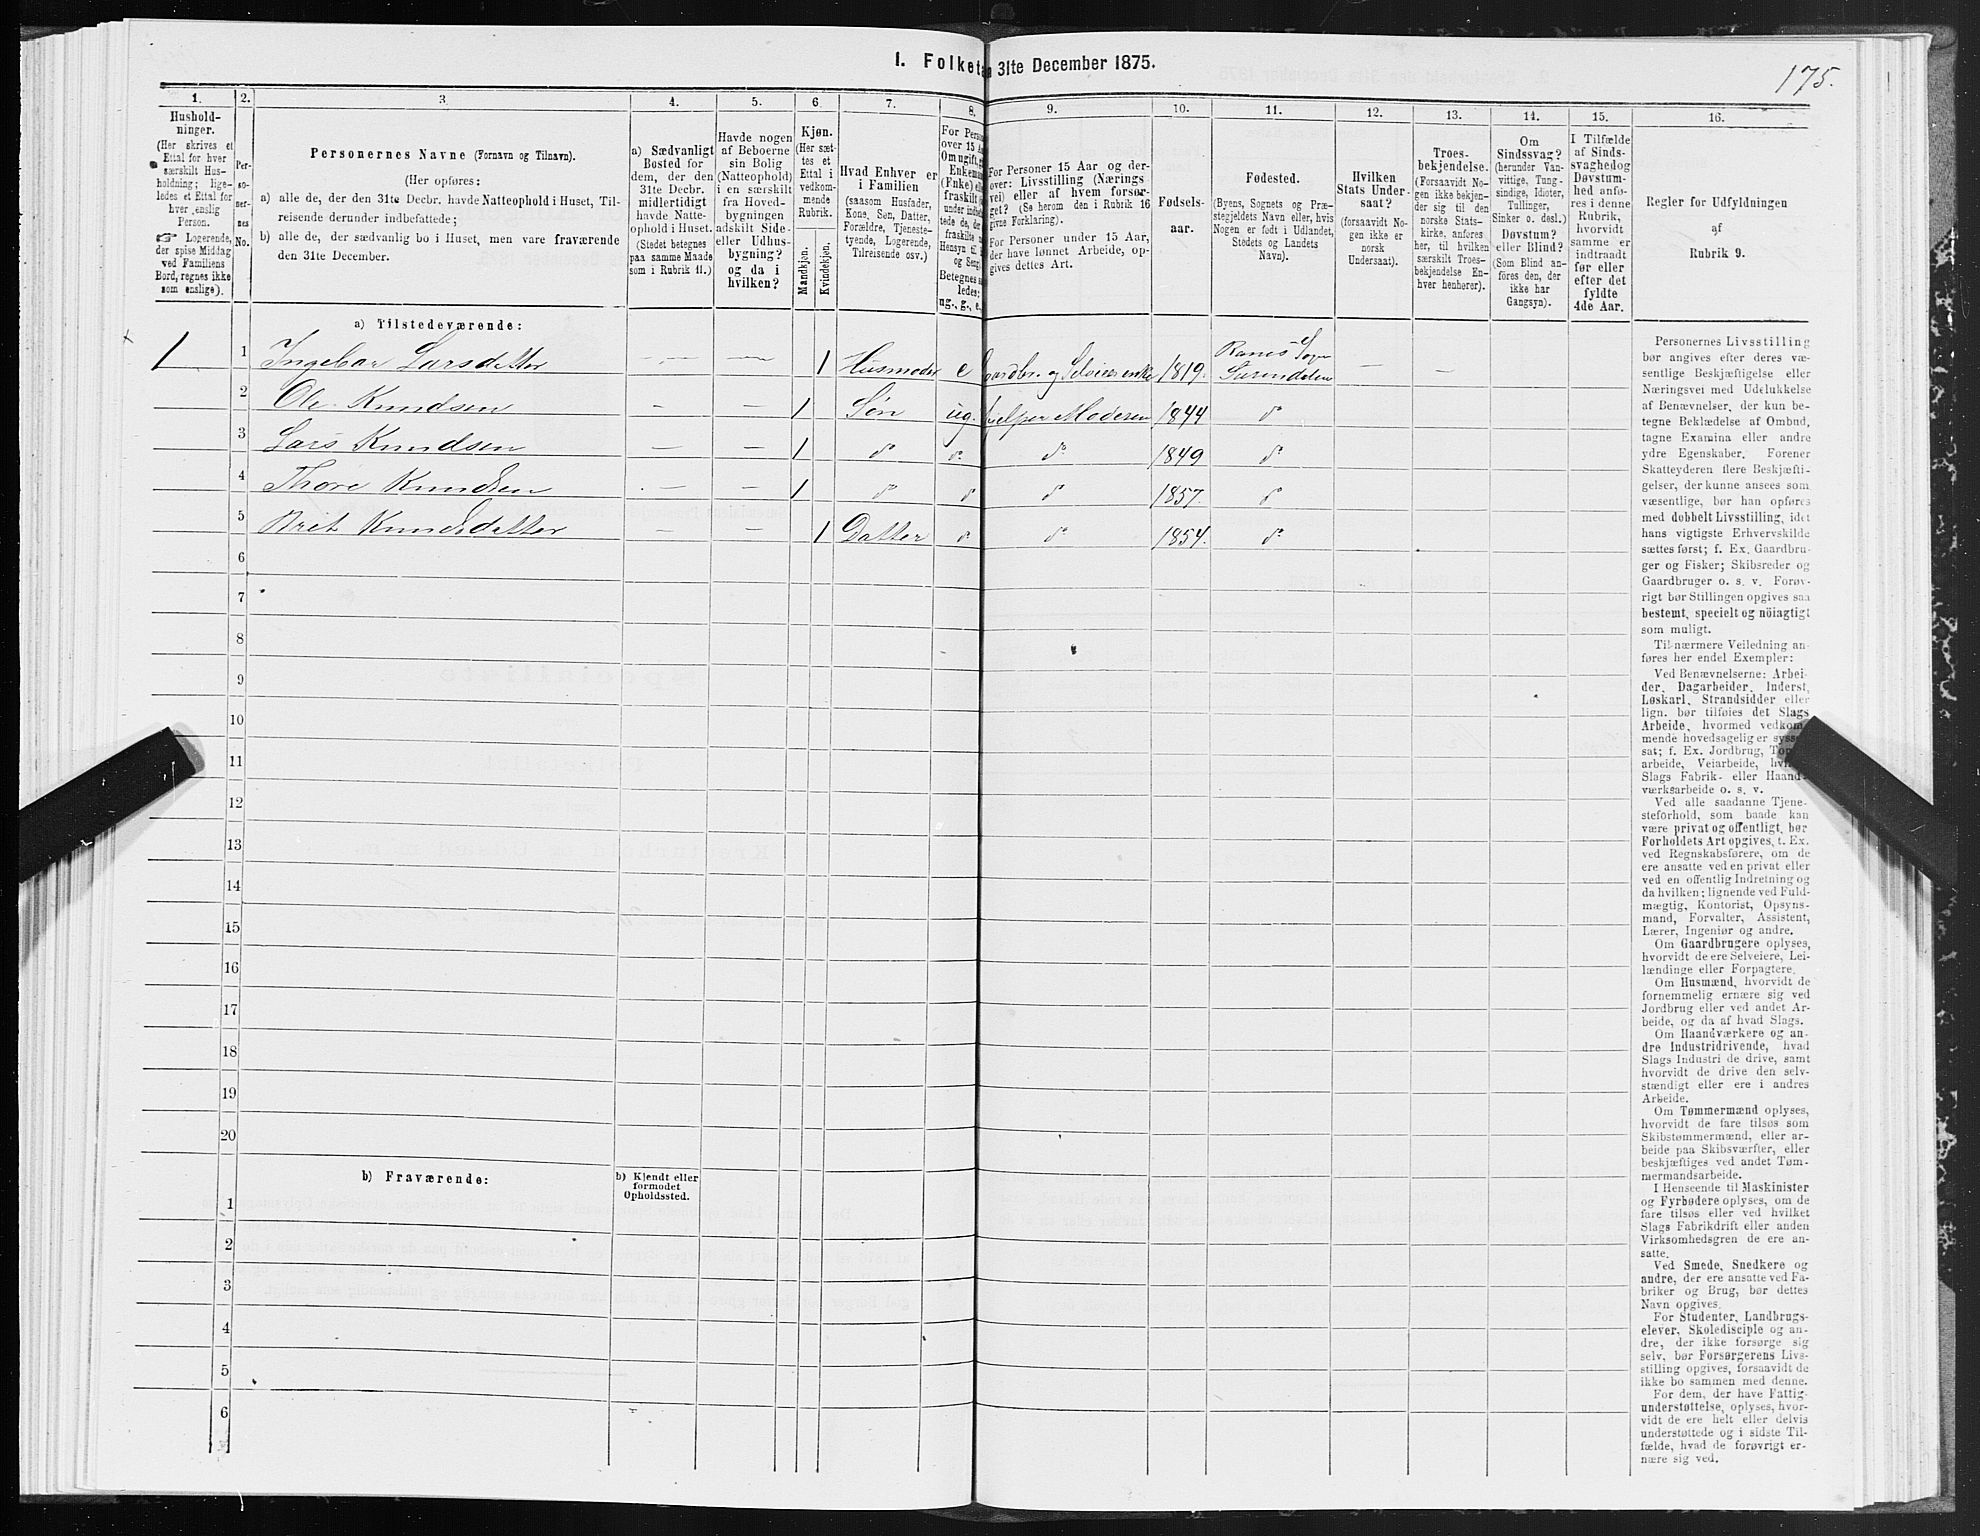 I. Folketæ 31te December 1875.
175.
1.
Hushold-
ninger.
(Her skrives et
Ettal for hver
særskilt Hus-
holdning; lige-
ledes et Ettal for
hver enslig
Person.
☞ Logerende,
der spise Middag
ved Familiens
Bord, regnes ikke
som enslige).
2.
Per-
so-
ner-
nes
No.
3.
Personernes Navne (Fornavn og Tilnavn).
(Her opføres:
a) alle de, der den 31te Decbr. havde Natteophold i Huset, Til-
reisende derunder indbefattede;
b) alle de, der sædvanlig bo i Huset, men vare fraværende
den 31te December.
4.
a) Sædvanligt
Bosted for
dem, der den
31te Decbr.
midlertidigt
havde Natte-
ophold i Huset.
(Stedet betegnes
paa samme Maade
som i Rubrik 11.)
5.
Havde nogen
af Beboerne
sin Bolig
(Natteophold)
i en særskilt
fra Hoved-
bygningen
adskilt Side-
eller Udhus-
bygning?
og da i
hvilken?
6
Kjøn.
(Her sæt-
tes et
Ettal i
vedkom-
mende
Rubrik.
Mandkjøn.
Kvindekjøn.
7.
Hvad Enhver er
i Familien
(saasom Husfader,
Kone, Søn, Datter,
Forældre, Tjeneste-
tyende, Logerende,
Tilreisende osv.)
8.
For Perso
over 15 Aa
Om ugift, g
Enkem
(Fnke) el
fraskilt
under indbe
tede de, de
fraskilte
Hensyn til
og Seng
Betegnes s
ledes:
ug., g., e.
9.
For Personer 15 Aar og der-
over: Livsstilling (Nærings
vei) eller af hvem forsør-
get? (Se herom den i Rubrik 16
givne Forklaring).
For Personer under 15 Aar,
der have lønnet Arbeide, op-
gives dettes Art.
10.
Fødsels-
aar.
11.
Fødested.
(Byens, Sognets og Præ-
stegjeldets Navn eller, hvis
Nogen er født i Udlandet,
Stedets og Landets
Navn).
12.
Hvilken
Stats Under-
saat?
(forsaavidt No-
gen ikke er
norsk
Undersaat).
13.
Troes-
bekjendelse.
(Forsaavidt No-
gen ikke bekjen-
der sig til den
norske Stats-
kirke, anføres
her, til hvilken
særskilt Troes-
bekjendelse En-
hver henhører).
14.
Om
Sindssvag?
(herunder Van-
vittige, Tung-
sindige, Idioter,
Tullinger,
Sinker o. desl.)
Døvstum?
eller Blind?
(Som Blind an-
føres den, der
ikke har
Gangsyn).
15.
I Tilfælde
af Sinds-
svaghed og
Døvstum-
hed anfø-
res i denne
Rubrik,
hvorvidt
samme er
indtraadt
før eller
efter det
fyldte
4de Aar.
16.
Regler for Udfyldningen
af
Rubrik 9.
a) Tilstedeværende:
1 1 Ingebor Larsdatter — — 1 Husmoder e Gaardbr. og Selveier enke 1819. Ranes Sogn Surendalen — —
2 Ole Knudsen — — 1 Søn ug. hjelper Moderen 1844 do
3 Lars Knudsen — — 1 do do do 1849 do
4 Thore Knudsen — — 1 do do do 1857. do
5 Brit Knudsdatter — — 1 Datter do do 1854. do
6
7
8
9
10
11
12
13
14
15
16
17
18
19
20
b) Fraværende:
b) Kjendt eller
formodet
Opholdssted.
1
2
3
4
5
6
Personernes Livsstilling
bør angives efter deres væ-
sentlige Beskjæftigelse eller
Næringsvei med Udelukkelse
af Benævnelser, der kun be-
tegne Beklædelse af Ombud,
tagne Examina eller andre
ydre Egenskaber. Forener
Skatteyderen flere Beskjæfti-
gelser, der kunne ansees som
væsentlige, bør han opføres
med dobbelt Livsstilling, idet
hans vigtigste Erhvervskilde
sættes først; f. Ex. Gaardbru-
ger og Fisker; Skibsreder og
Gaardbruger o. s. v. Forøv-
rigt bør Stillingen opgives saa
bestemt, specielt og nöiagtigt
som muligt.
Til nærmere Veiledning an-
føres her endel Exempler:
Ved Benævnelserne: Arbei-
der, Dagarbeider, Inderst,
Løskarl, Strandsidder eller
lign. bør tilføies det Slags
Arbeide, hvormed vedkom-
mende hovedsagelig er syssel
sat; f. Ex. Jordbrug, Tom
arbeide, Veiarbeide, hvi
Slags Fabrik- eller Haand-
værksarbeide o. s. v.
Ved alle saadanne Tjene-
steforhold, som baade kan
være privat og offentligt, bør
Forholdets Art opgives, t. Ex.
ved Regnskabsførere, om de
ere ansatte ved en privat eller
ved en offentlig Indretning og
da hvilken; lignende ved Fuld-
mægtig, Kontorist, Opsyns-
mand, Forvalter, Assistent,
Lærer, Ingeniør og andre.
Om Gaardbrugere oplyses,
hvorvidt de ere Selveiere, Lei-
lændinge eller Forpagtere.
Om Husmænd, hvorvidt de
fornemmelig ernære sig ved
Jordbrug eller ved andet Ar-
beide, og da af hvad Slags.
Om Haandværkere og an-
dre Industridrivende, hvad
Slags Industri de drive, samt
hvorvidt de drive den selv-
stændigt eller ere i andres
Arbeide.
Om Tømmermænd oplyses,
hvorvidt de fare tilsøs som
Skibstømmermænd, eller ar-
beide paa Skibsværfter, eller
beskjæftiges ved andet Tøm-
mermandsarbeide.
I Henseende til Maskinister
og Fyrbødere oplyses, om de
fare tilsøs eller ved hvilket
Slags Fabrikdrift eller anden
Virksomhedsgren de ere an-
satte.
Ved Smede, Snedkere og
andre, der ere ansatte ved Fa-
briker og Brug, bør dettes
Navn opgives.
For Studenter, Landbrugs-
elever, Skoledisciple og an-
dre, der ikke forsørge sig
selv, bør Forsørgerens Livs-
stilling opgives, forsaavidt de
ikke bo sammen med denne.
For dem, der have Fattig-
understøttelse, oplyses, hvor-
vidt de ere helt eller delvis
understøttede og i sidste Til-
fælde, hvad de forøvrigt er-
nære sig ved.